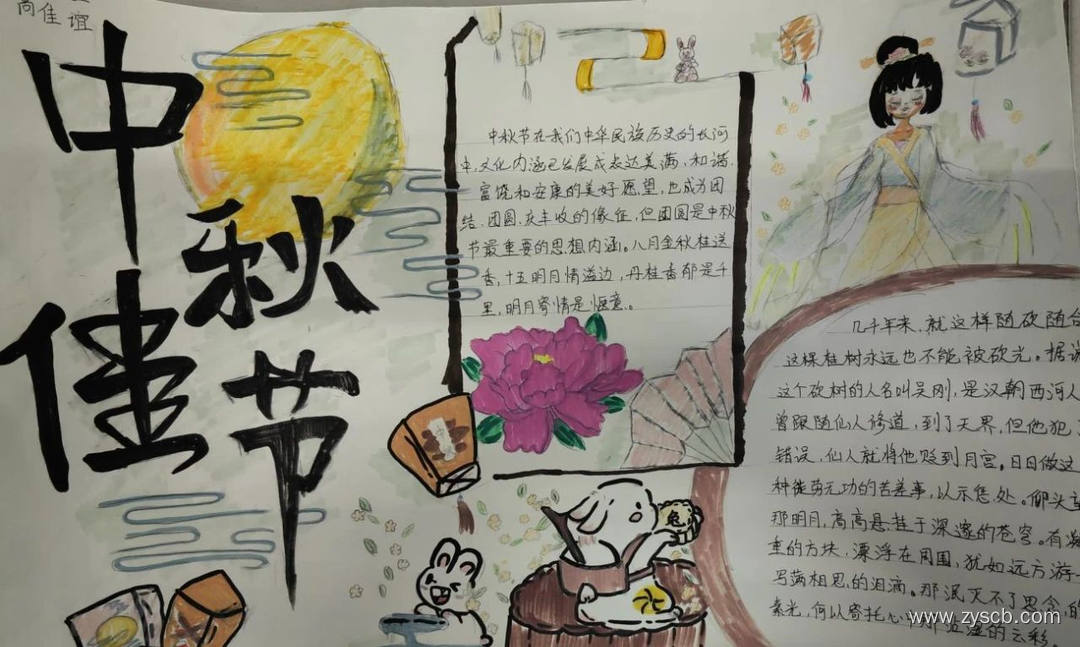 尚佳谊
中秋佳节
中秋节在我们中华民族历史的长河
中,文化内涵已发展成表达美满、和谐、
富饶和安康的美好愿望,也成为团
结、团圆、庆丰收的像征,但团圆是中秋
节最重要的思想内涵。八月金秋桂送
香,十五明月情溢边,丹桂香郁是千
里,明月寄情是惬意。
几千年来,就这样随砍随合
这棵桂树永远也不能被砍光。据说
这个砍树的人名叫吴刚,是汉朝西河人
曾跟随仙人修道,到了天界,但他犯了
错误,仙人就将他贬到月宫。日日做这
种徒劳无功的苦差事,以示惩处。仰头
那明月,高高悬挂于深邃的苍穹。有
重的方块,漂浮在周围,犹如远方游
写满相思的泪滴。那泯灭不了思念的
素光,何以寄托心中那 的云彩。
兔
www.zyscb.com